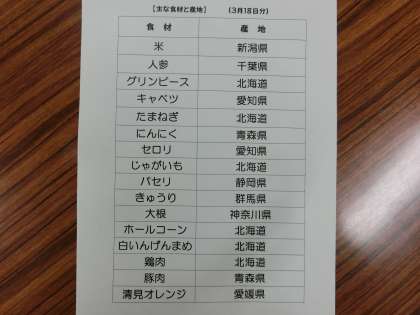 【主な食材と産地】 (3月18日分)
食 材 産 地
米 新潟県
人参 千葉県
グリンピース 北海道
キャベツ 愛知県
たまねぎ 北海道
にんにく 青森県
セロリ 愛知県
じゃがいも 北海道
パセリ 静岡県
きゅうり 群馬県
大根 神奈川県
ホールコーン 北海道
白いんげんまめ 北海道
鶏肉 北海道
豚肉 青森県
清見オレンジ 愛媛県